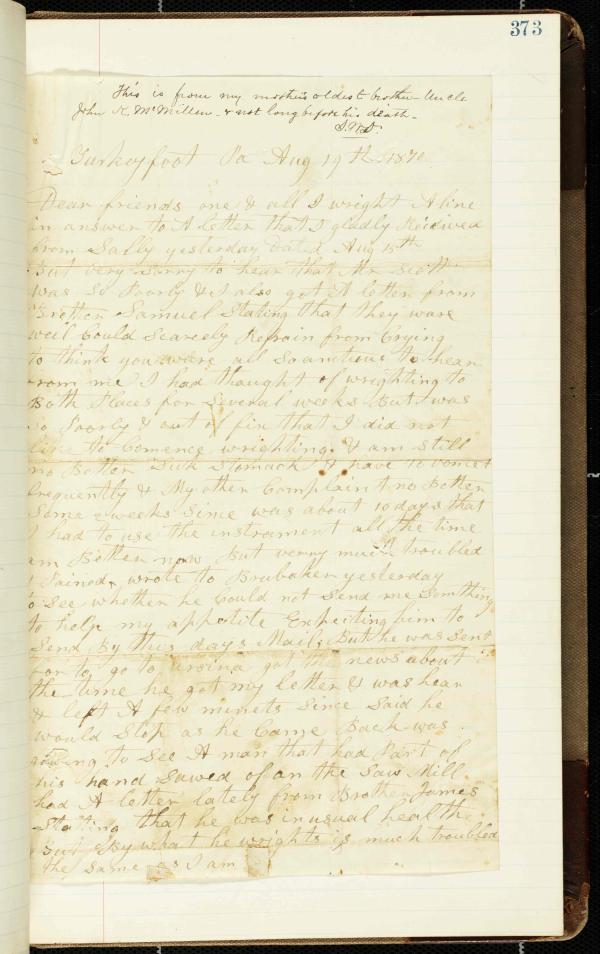 373
This is from my mother's oldest brother - Uncle
John K. McMillen - & not long before his death -
Turkeyfoot Pa Aug 19th 1870
Dear friends one & all I wright A line
in answer to A letter that I gladly Received
from Sally yesterday Dated Aug 15th
But very Sorry to hear that Mr Scott
was So Poorly & I also got A letter from
Brother Samuel Stating that they ware
well Could Scarcely Refrain from Crying
to think you ware all So anctious to hear
from me I had thought of wrighting to
Both Places for Several weeks But was
so Poorly & out of fix that I did not
like to Comence wrighting & am Still
no Better Sick Stomach & have to vomet
frequently & My other Complaint no Better
Some weeks Since was about 10 days that
I had to use the instrament all the time
am Better now But verry much troubled
& Pained wrote to Brubaker yesterday
to See whether he Could not Send me Somthing
to help my appetite Expeiting him to
Send By this days Mail, But he was Sent
for to go to ursina got the news about
the time he got my letter & was hear
& left A few minets Since Said he
would Stop as he Came Back was
going to See A man that had Part of
his hand Sawed of an the Saw Mill
had A letter lately from Brother James
Stating that he was in usual health
But By what he wrights is much troubled
the Same as I am